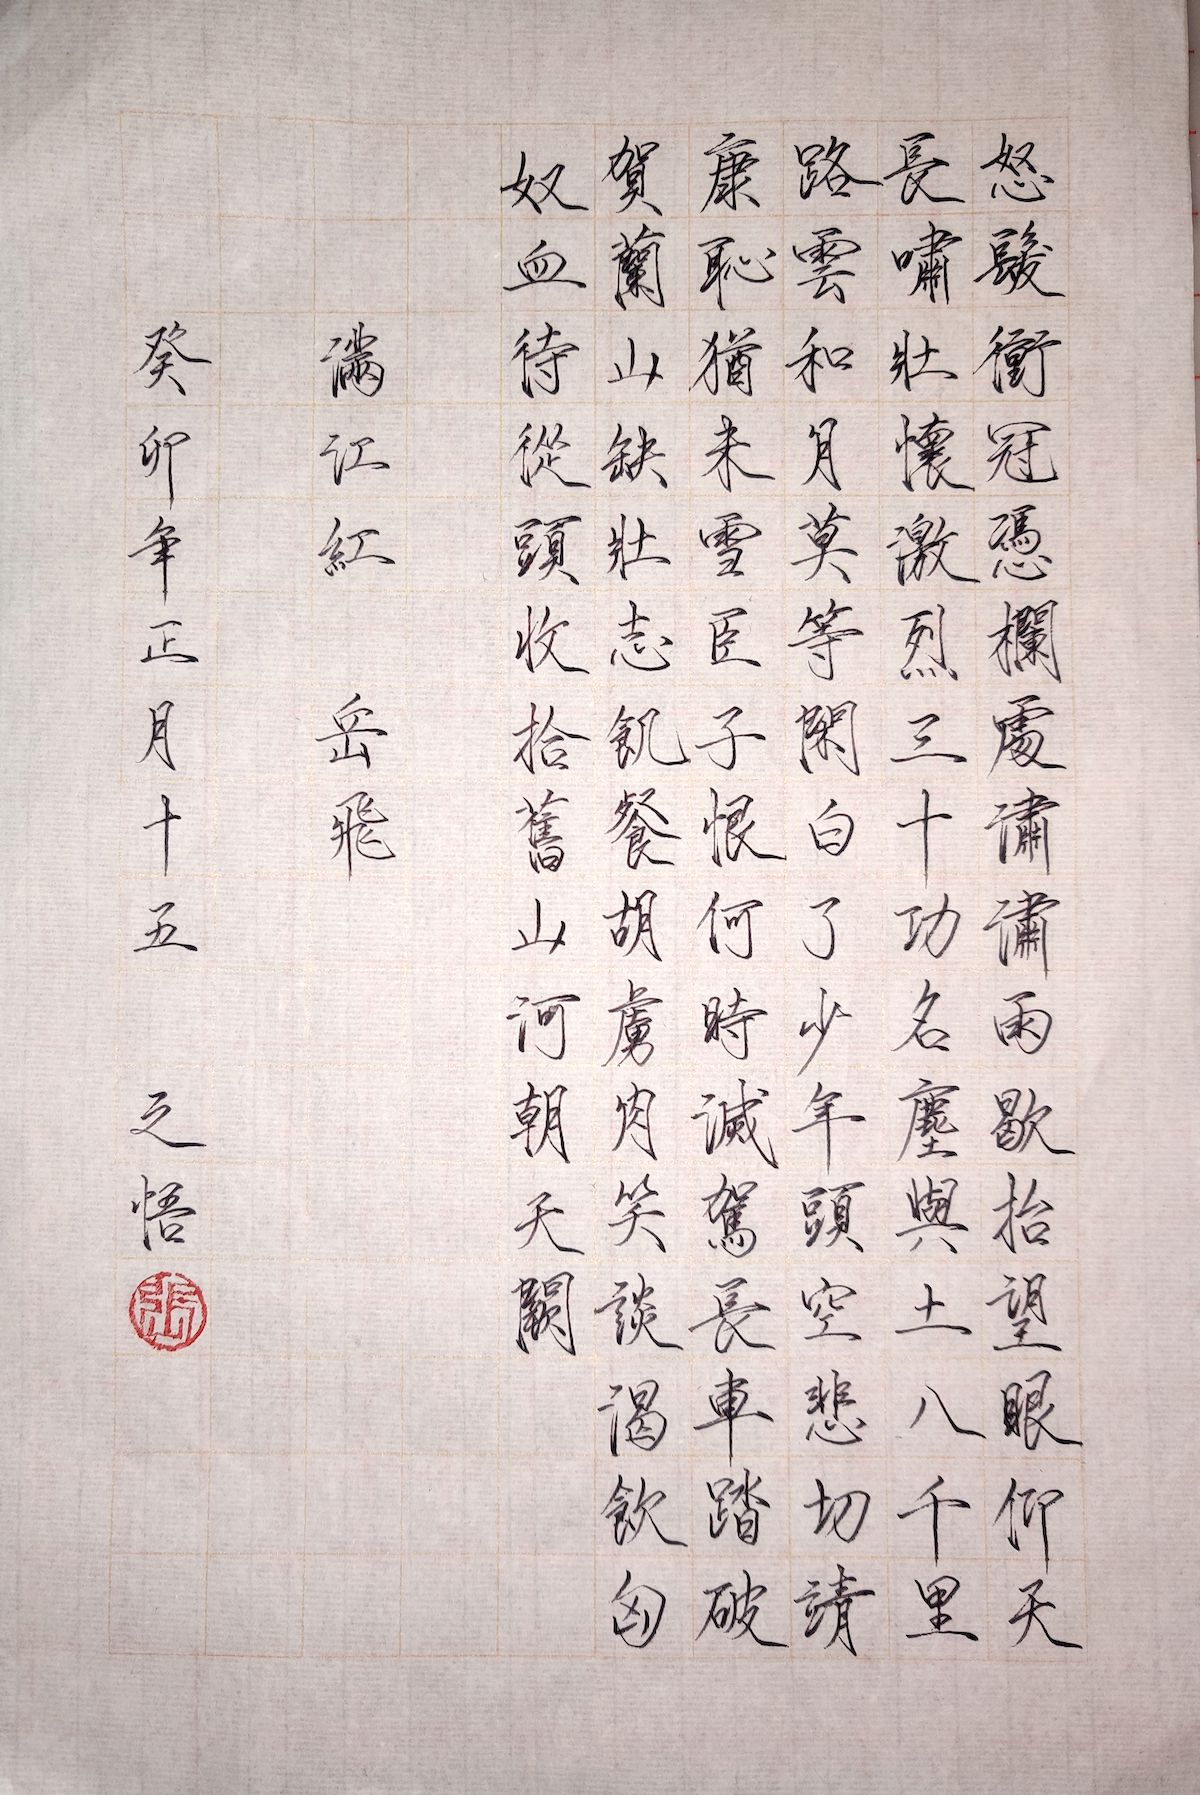 怒髮衝冠憑欄處潚潚雨歇抬望眼仰天
長嘯壯懷激烈三十功名塵與土八千里
路雲和月莫等閑白了少年頭空悲切靖
康恥猶未雪臣子恨何時滅駕長車踏破
賀蘭山缺壯志飢餐胡虜肉笑談渴飲匈
奴血待從頭收拾舊山河朝天闕
滿江紅 岳飛
癸卯年正月十五 之悟